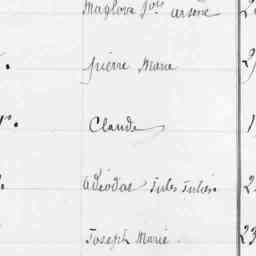 Magloire Jos. Arsène
Pierre Marie
Claude
Adéodat Jules Julien
Joseph Marie
23